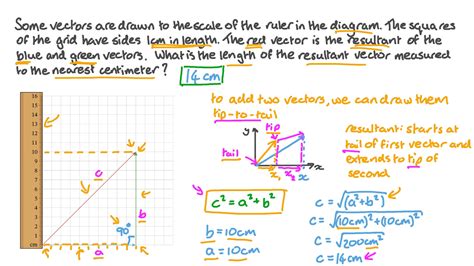 Some vectors are drawn to the scale of the ruler in the diagram. The squares
of the grid have sides 1cm in length. The red vector is the resultant of the
blue and green vectors. What is the length of the resultant vector measured
to the nearest centimeter? 14cm
to add two vectors, we can draw them
tip-to-tail
tip
y
tail
x₁
x₂
x
resultant: starts at
tail of first vector and
extends to tip of
second
16
15
14
13
12
11
10
9
8
7
6
5
4
3
2
1
cm
c
b
90°
a
c² = a² + b²
b = 10cm
a = 10cm
c = √(a²+b²)
c = √(10cm)²+(10cm)²
c = √200cm²
c = 14cm